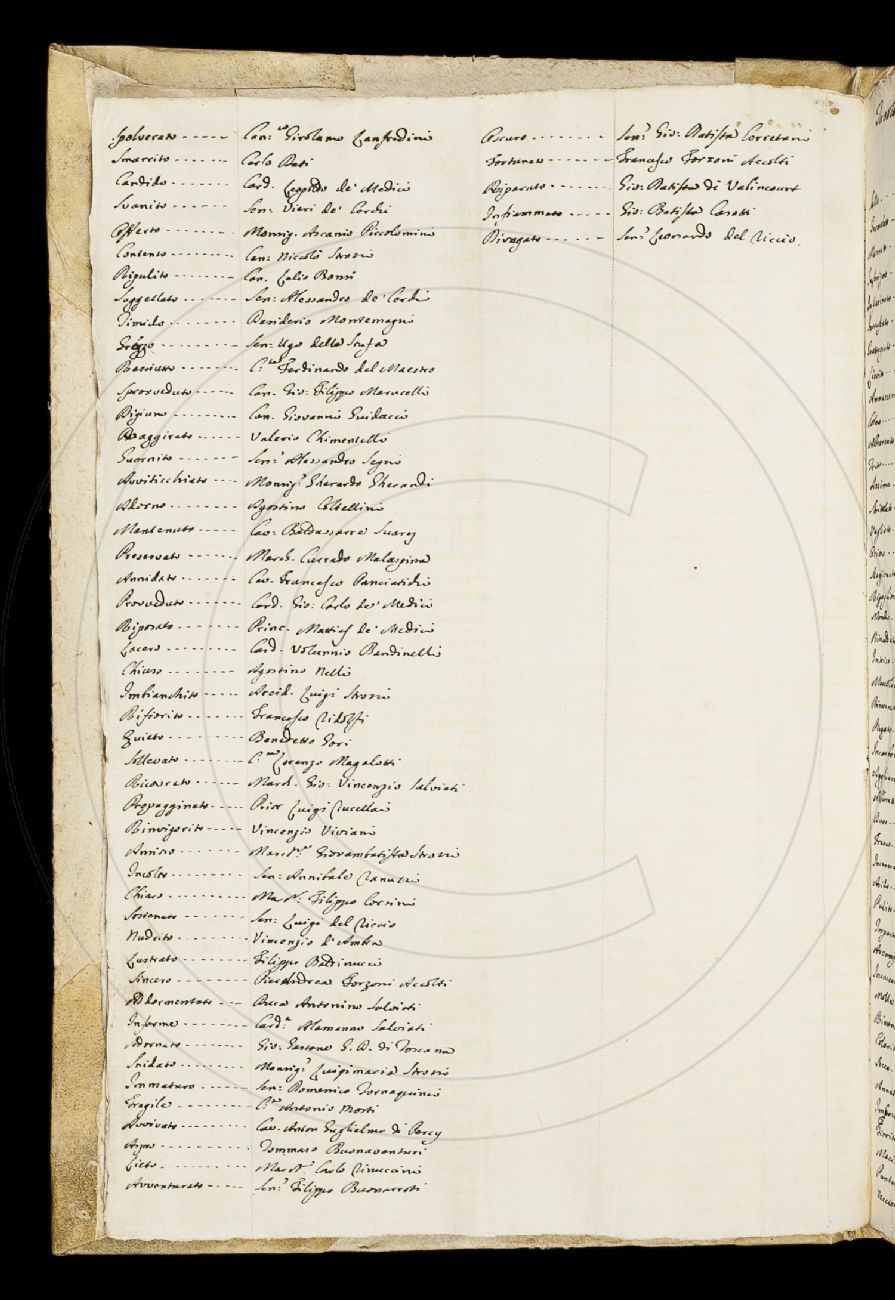 Spolverato - - - - - Can:co Girolamo Lanfredini
Smarrito - - - - - - Carlo Dati
Candido - - - - - - Card. Leopoldo de' Medici
Svanito - - - - - - Sen: Vieri de' Cerchi
Offerto - - - - - - Monsig. Ascanio Piccolomini
Contento - - - - - - Can: Niccolò Strozzi
Ripulito - - - - - - Can. Lelio Bonsi
Suggellato - - - - - Sen: Alessandro de' Cerchi
Timido - - - - - - Desiderio Montemagni
Grezzo - - - - - - Sen: Ugo della Stufa
C.te Ferdinando del Maestro
Sprovveduto - - - - Can. Gio: Filippo Marucelli
Digiuno - - - - - - Can. Giovanni Guidacci
Raggirato - - - - - Valerio Chimentelli
Guernito - - - - - - Sen.r Alessandro Segni
Avviticchiato - - - Monsig.r Gherardo Gherardi
Adorno - - - - - - Agostino Coltellini
Mantenuto - - - - Cav: Baldassarre Suarez
Preservato - - - - - March. Currado Malaspina
Annidato - - - - - - Cav. Francesco Panciatichi
Provveduto - - - - - Card. Gio: Carlo de' Medici
Riposato - - - - - - Princ. Mattias de' Medici
Lacero - - - - - - Card. Volunnio Bandinelli
Chiuso - - - - - - Agostino Nelli
Imbianchito - - - - Arcid. Luigi Strozzi
Rifiorito - - - - - - Francesco Ridolfi
Quieto - - - - - - Benedetto Gori
Sollevato - - - - - - C.te Lorenzo Magalotti
Ricovrato - - - - - March. Gio: Vincenzio Salviati
Propagginato - - - Prior Luigi Rucellai
Rinvigorito - - - - Vincenzio Viviani
March.se Giovambatista Strozzi
Incolto - - - - - - Sen: Annibale Ranuzzi
Chiaro - - - - - - March. Filippo Corsini
Sostenuto - - - - - Sen: Luigi del Riccio
Nudrito - - - - - - Vincenzio d'Ambra
Lustrato - - - - - - Filippo Baldinucci
Sincero - - - - - - Pierandrea Forzoni Accolti
Addormentato - - - Duca Antonino Salviati
Informe - - - - - - Card.e Alamanno Salviati
Adornato - - - - - - Gio: Gastone G. D. di Toscana
Snidato - - - - - - Monsig.r Luigi maria Strozzi
Immaturo - - - - - Sen: Domenico Tornaquinci
Fragile - - - - - - C.te Antonio Morti
Avvivato - - - - - - Cav. Anton Guglielmo di Percy
Aspro - - - - - - Tommaso Buonaventuri
Lieto - - - - - - March. Carlo Rinuccini
Avventurato - - - - Sen.r Filippo Buonarroti
Oscuro - - - - - - Sen.r Gio: Batista Cerretani
Fortunato - - - - - Francesco Forzoni Accolti
Riparato - - - - - Gio: Batista di Valincourt
Infiammato - - - - Gio: Batista Casotti
Divagato - - - - - - Sen.r Leonardo del Riccio.